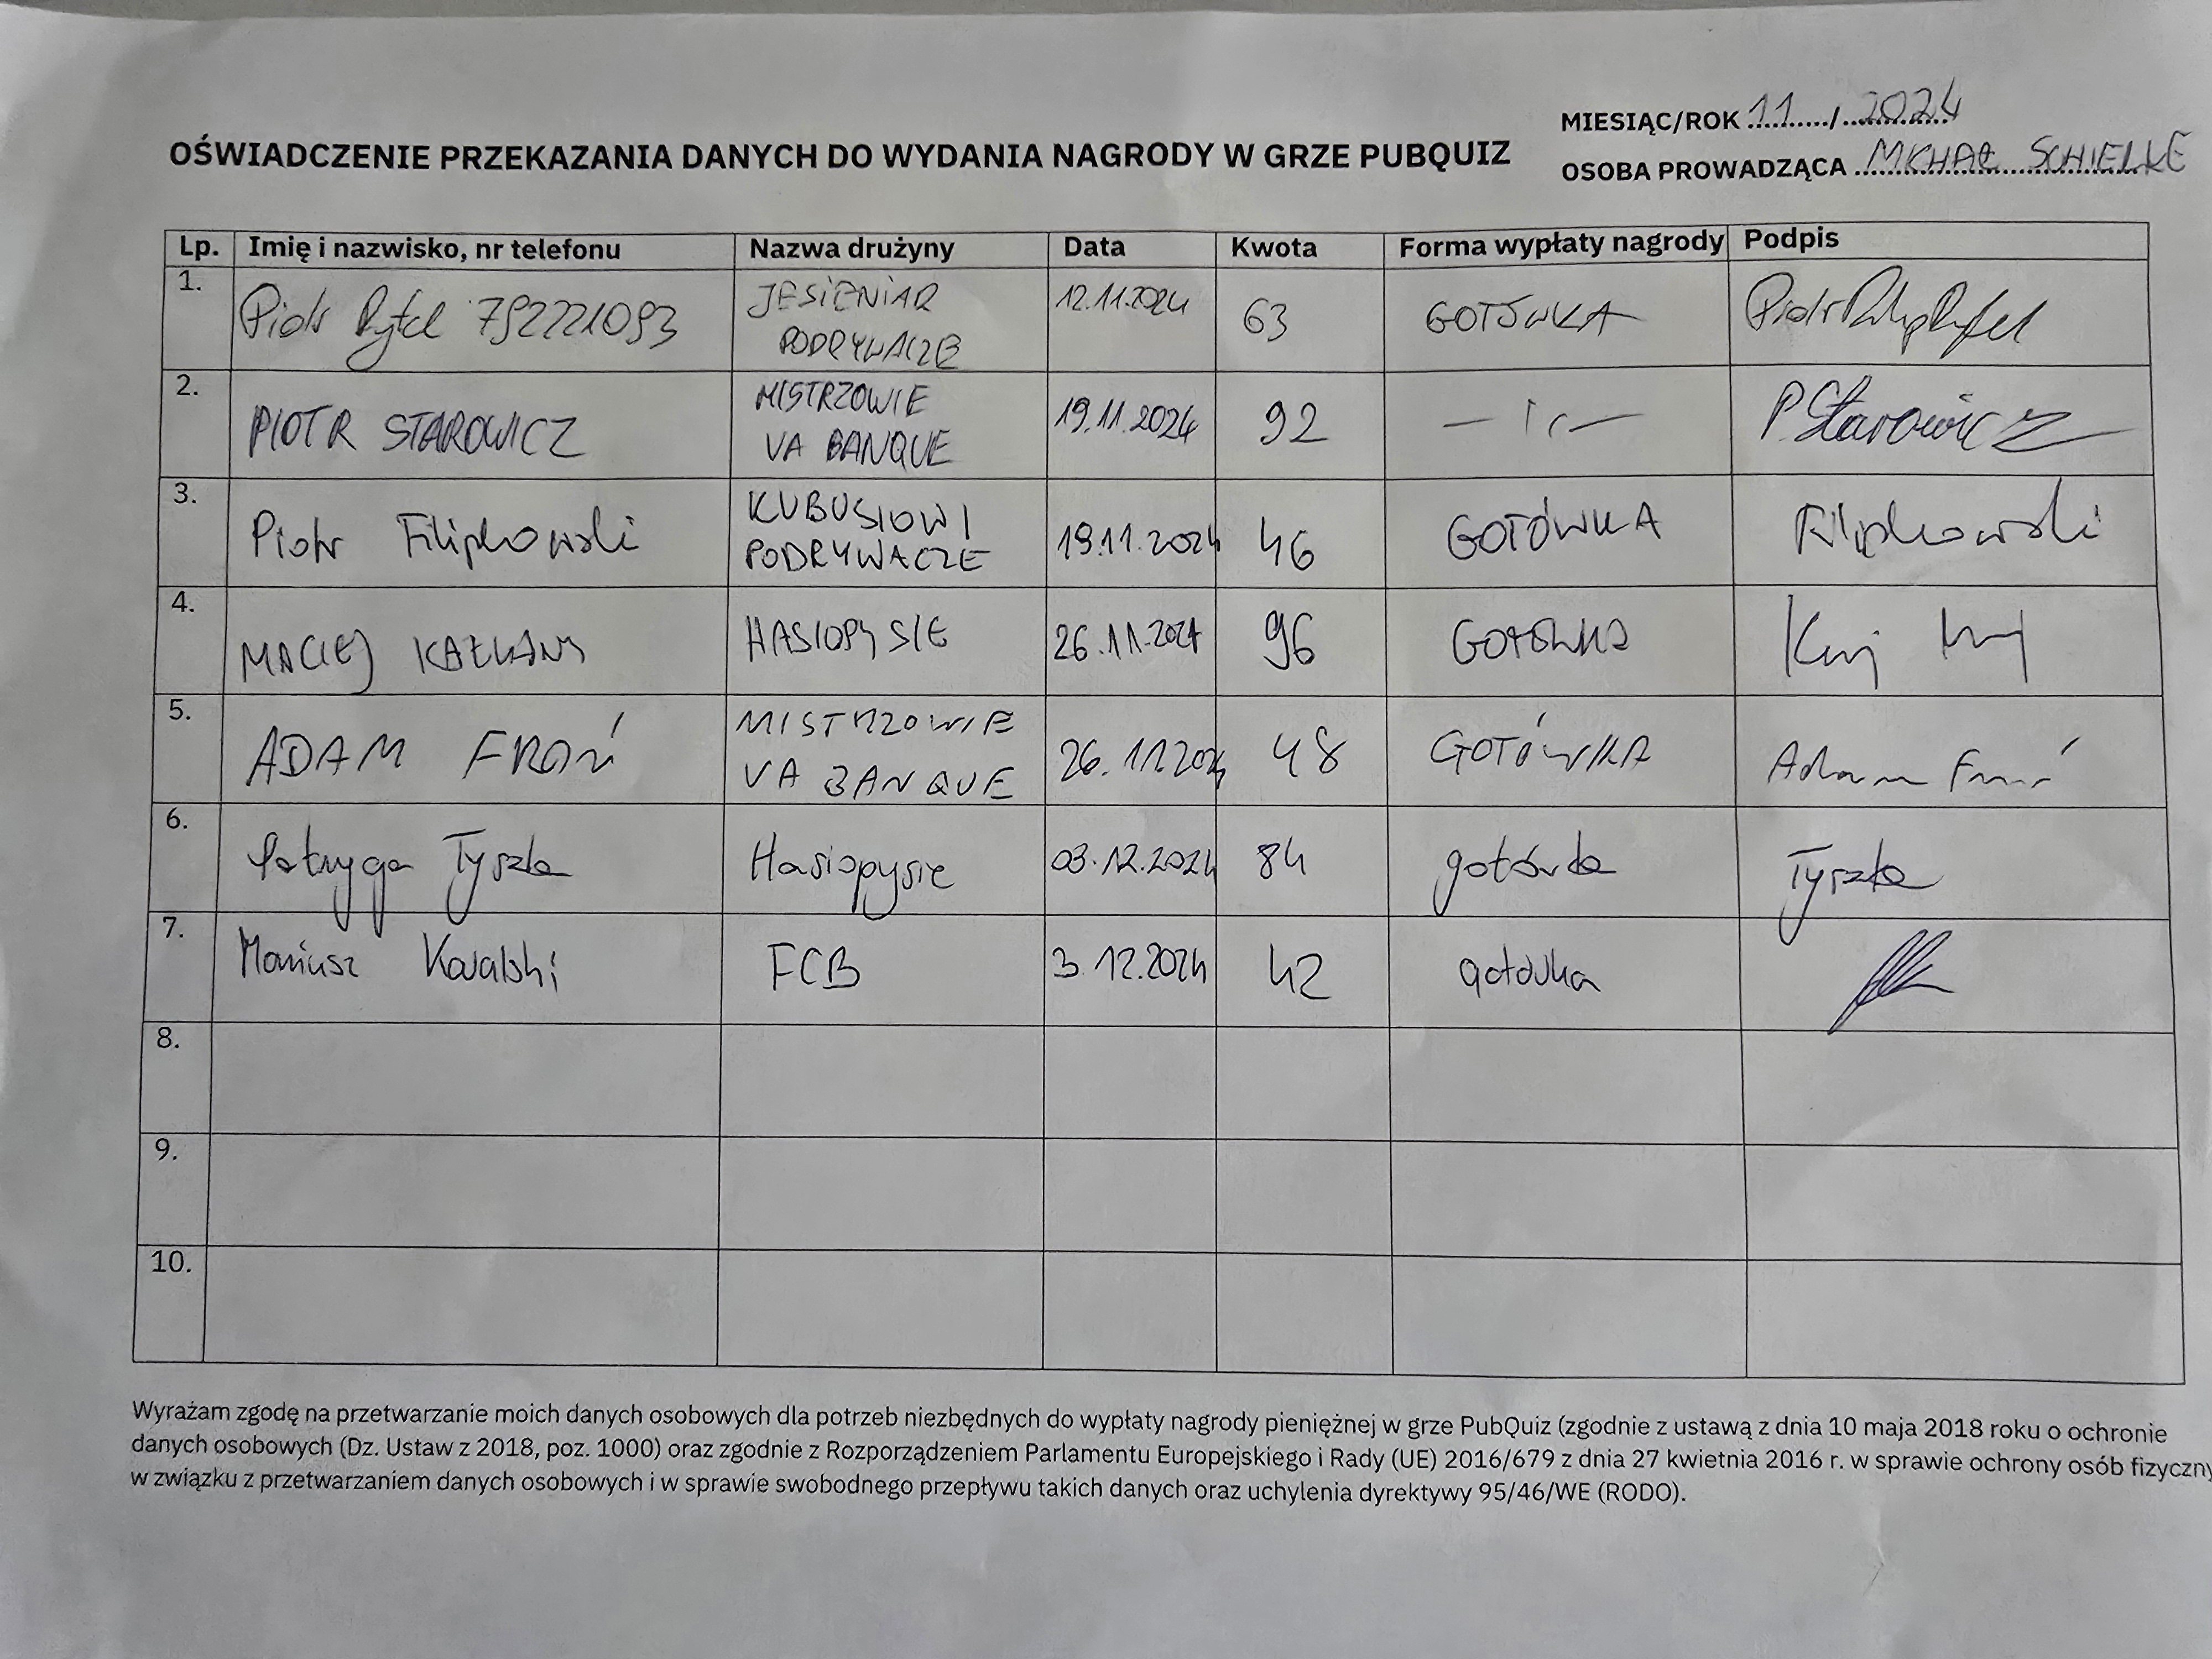 MIESIĄC/ROK 11/2024
OŚWIADCZENIE PRZEKAZANIA DANYCH DO WYDANIA NAGRODY W GRZE PUBQUIZ
OSOBA PROWADZĄCA MICHAŁ SCHIELKE
Lp. Imię i nazwisko, nr telefonu Nazwa drużyny Data Kwota Forma wypłaty nagrody Podpis
1. Piotr Rytel 792221093 JESIENIAR PODRYWACZE 12.11.2024 63 GOTÓWKA
2. PIOTR STAROWICZ MISTRZOWIE VA BANQUE 19.11.2024 92 —ıı— P. Starowicz
3. Piotr Filipkowski KUBUSIOWI PODRYWACZE 19.11.2024 46 GOTÓWKA Filipkowski
4. MACIEJ HASIOPYSIE 26.11.2024 96 GOTÓWKA
5. ADAM FROŃ MISTRZOWIE VA BANQUE 26.11.2024 48 GOTÓWKA Adam Froń
6. Patryga Tyszka Hasiopysie 03.12.2024 84 gotówka Tyszka
7. Mariusz Kowalski FCB 3.12.2024 42 gotówka
8.
9.
10.
Wyrażam zgodę na przetwarzanie moich danych osobowych dla potrzeb niezbędnych do wypłaty nagrody pieniężnej w grze PubQuiz (zgodnie z ustawą z dnia 10 maja 2018 roku o ochronie
danych osobowych (Dz. Ustaw z 2018, poz. 1000) oraz zgodnie z Rozporządzeniem Parlamentu Europejskiego i Rady (UE) 2016/679 z dnia 27 kwietnia 2016 r. w sprawie ochrony osób fizyczny
w związku z przetwarzaniem danych osobowych i w sprawie swobodnego przepływu takich danych oraz uchylenia dyrektywy 95/46/WE (RODO).